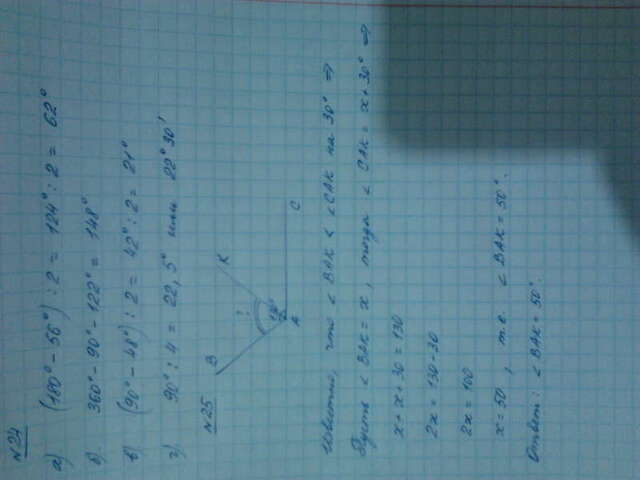 №24
а) (180° - 56°) : 2 = 124° : 2 = 62°
б) 360° - 90° - 122° = 148°
в) (90° - 48°) : 2 = 42° : 2 = 21°
г) 90° : 4 = 22,5° или 22° 30'
№25
B
K
?
A
C
Известно, что < BAK < < CAK на 30° ⇒
Пусть < BAK = x, тогда < CAK = x + 30° ⇒
x + x + 30 = 130
2x = 130 - 30
2x = 100
x = 50, т.е. < BAK = 50°.
Ответ: < BAK = 50°.